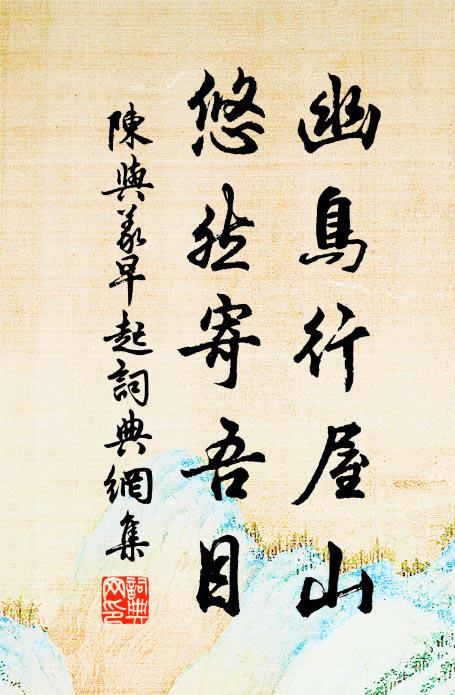 幽鳥行屋山
悠然寄吾目
陳與義早起詞典網集
詞典網印